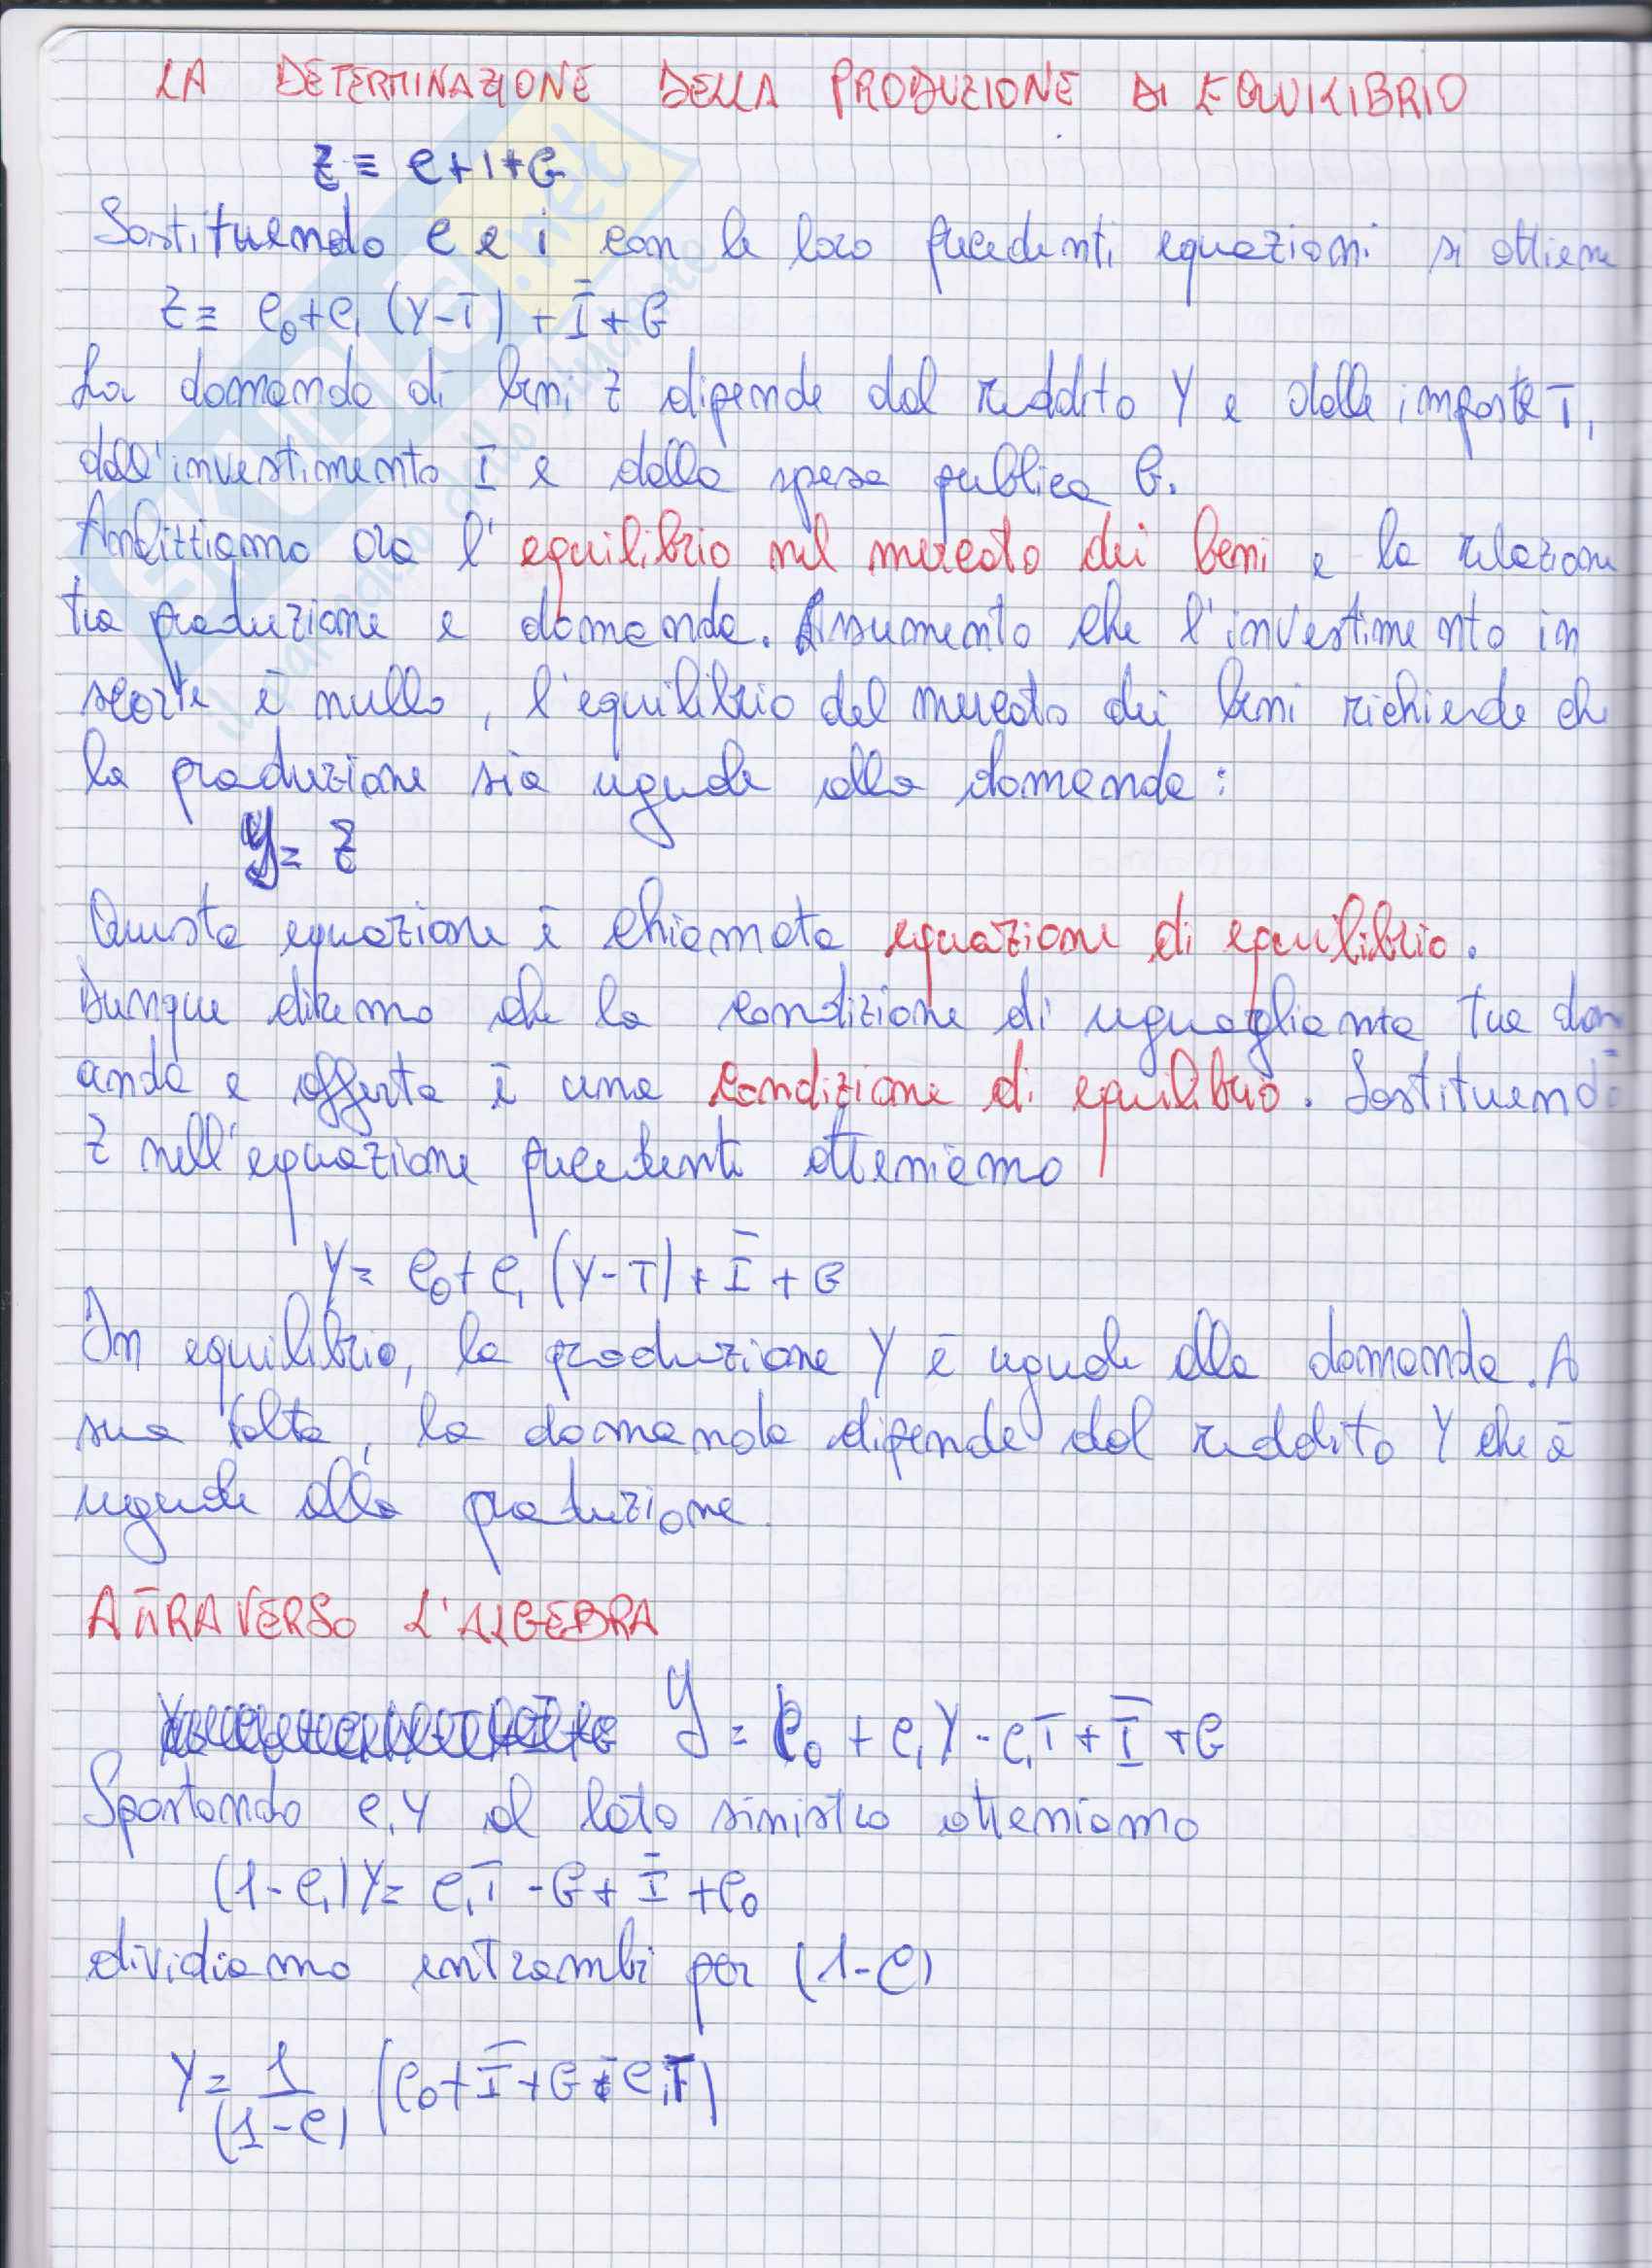 LA DETERMINAZIONE DELLA PRODUZIONE DI EQUILIBRIO
Z ≡ C+I+G
Sostituendo C e i con le loro precedenti equazioni si ottiene
Z ≡ C₀+C₁ (Y-T) + Ī + G
La domanda di beni Z dipende dal reddito Y e dalle imposte T,
dall'investimento I e dalla spesa publica G.
ora l'equilibrio nel mercato dei beni e la relazione
tra produzione e domanda. Assumento che l'investimento in
scorte è nullo, l'equilibrio del mercato dei beni richiede che
la produzione sia uguale alla domanda:
Y = Z
Questa equazione è chiamata equazione di equilibrio.
Dunque diremo che la condizione di uguaglianza tra dom
anda e offerta è una condizione di equilibrio. Sostituendo
Z nell'equazione precedente otteniamo
Y = C₀+C₁ (Y-T) + Ī + G
In equilibrio, la produzione Y è uguale alla domanda. A
sua volta, la domanda dipende dal reddito Y che è
uguale alla produzione.
ATTRAVERSO L'ALGEBRA
Y = C₀ + C₁Y - C₁T + Ī + G
Spostando C₁Y al lato sinistro otteniamo
(1-C₁)Y = C₁T - G + Ī + C₀
dividiamo entrambi per (1-C)
Y = 1/(1-C) (C₀ + Ī + G - C₁T)
SKUOLA.net
il paradiso dello studente